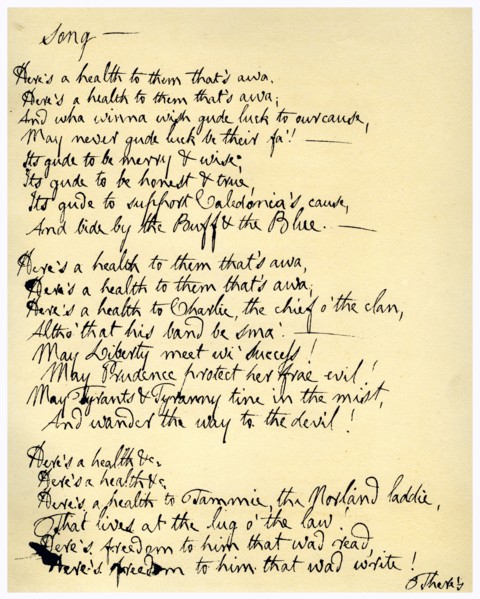 Song —
Here's a health to them that's awa.
Here's a health to them that's awa;
And wha winna wish gude luck to our cause,
May never gude luck be their fa'! —
Its gude to be merry & wise;
Its gude to be honest & true,
Its gude to support Caledonia's cause,
And bide by the Buff & the Blue. —
Here's a health to them that's awa,
Here's a health to them that's awa;
Here's a health to Charlie, the chief o' the clan,
Altho' that his band be sma'. —
May Liberty meet wi' success!
May Prudence protect her frae evil!
May Tyrants & Tyranny tine in the mist,
And wander the way to the devil!
Here's a health &c.
Here's a health &c
Here's a health to Tammie, the Norland laddie,
That lives at the lug o' the law!
Here's freedom to him that wad read,
Here's freedom to him that wad write!
There's